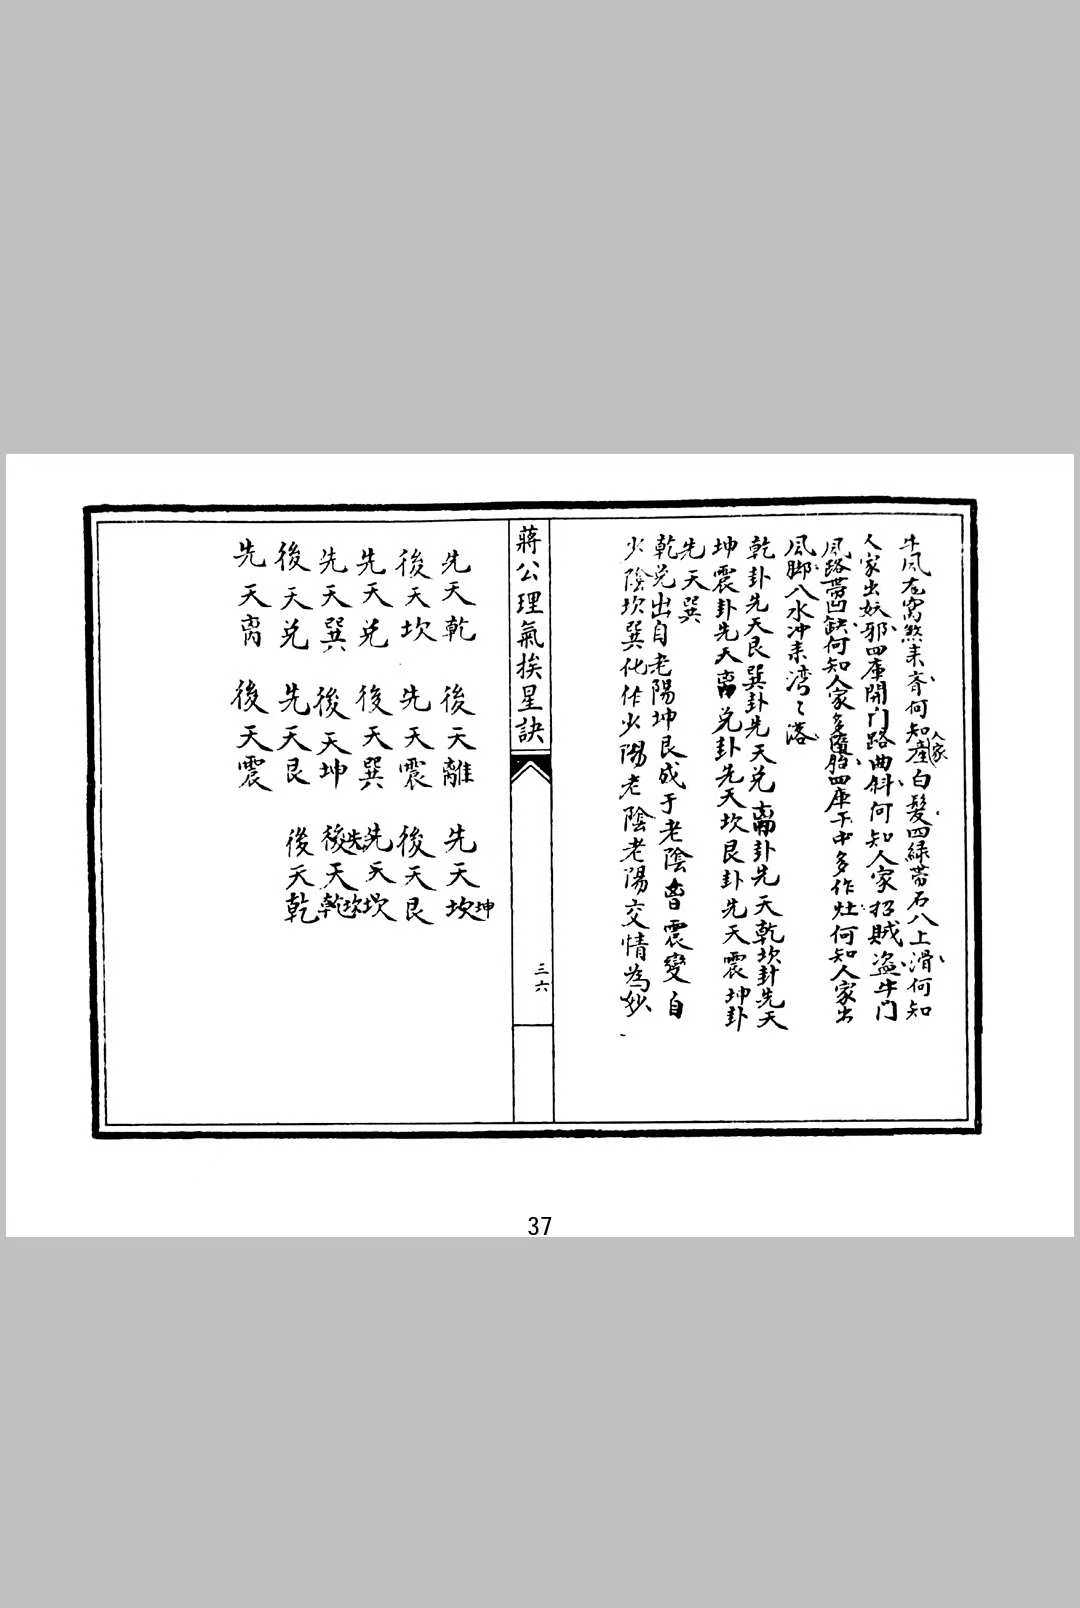 牛風左窩煞来斉何知產人家白髮四緑帶石八上滑何知
人家出妖邪四庫開门路曲斜何知人家招賊盜牛门
風路帶凹缺何知人家多股四庫下中多作灶何知人家出
風脚八水冲来湾〻落
乾卦先天艮巽卦先天兑离卦先天乾坎卦先天
坤震卦先天离兑卦先天坎艮卦先天震坤卦
先天巽
乾兑出自老陽坤艮成于老陰震變自
火陰坎巽化作火陽老陰老陽交情為妙
蔣公理氣挨星訣
三六
先天乾 後天離 先天坎坤
後天坎 先天震 後天艮
先天兑 後天巽 先天坎
先天巽 後天坤 後天乾先坎
後天兑 先天艮 後天乾
先天离 後天震
37